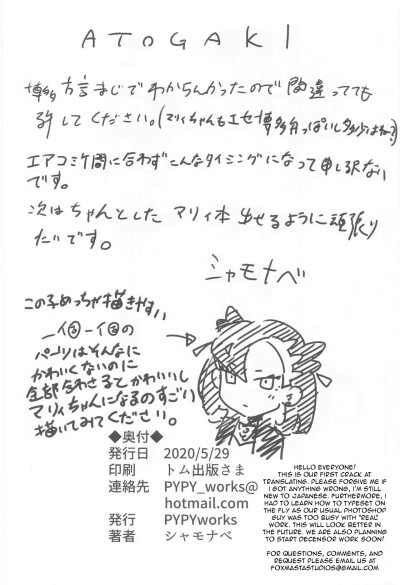 ATOGAKI
博多方言まじでわからんかったので間違ってても
許してください。(マリィちゃんもエセ博多弁っぽいし多少はね?)
エアコミケ間に合わずこんなタイミングになって申し訳ない
です。
次はちゃんとした マリィ本 出せるように頑張り
たいです。
シャモナベ
この子めっちゃ描きやすい
一個一個の
パーツはそんなに
かわいくないのに
全部合わさるとかわいいし
マリィちゃんになるのすごい
描いてみてください。
◆奥付◆
発行日 2020/5/29
印刷 トム出版さま
連絡先 PYPY_works@
hotmail.com
発行 PYPYworks
著者 シャモナベ
HELLO EVERYONE!
THIS IS OUR FIRST CRACK AT
TRANSLATING. PLEASE FORGIVE ME IF
I GOT ANYTHING WRONG, I'M STILL
NEW TO JAPANESE. FURTHERMORE, I
HAD TO LEARN HOW TO TYPESET ON
THE FLY AS OUR USUAL PHOTOSHOP
GUY WAS TOO BUSY WITH "REAL"
WORK. THIS WILL LOOK BETTER IN
THE FUTURE. WE ARE ALSO PLANNING
TO START DECENSOR WORK SOON!
FOR QUESTIONS, COMMENTS, AND
REQUEST PLEASE EMAIL US AT
FOXMASTASTUDIOS@GMAIL.COM